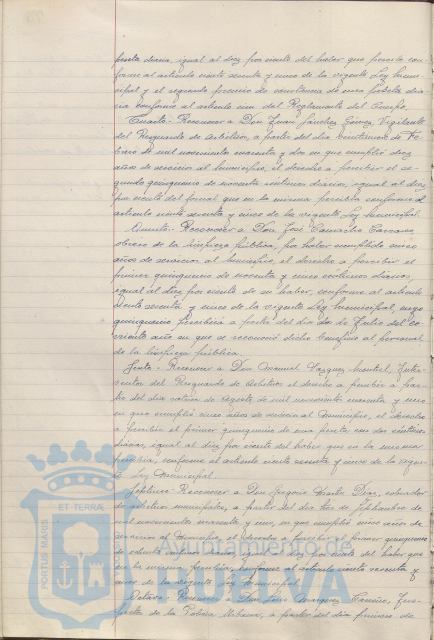 peseta diaria, igual al diez por ciento del haber que percibe con-
forme al artículo ciento sesenta y cinco de la vigente Ley Muni-
cipal y el segundo premio de constancia de una peseta dia-
ria conforme al artículo cien del Reglamento del Cuerpo.
Cuarto.- Reconocer a Don Juan Sánchez Gómez, Vigilante
del Resguardo de Arbitrios, a partir del día veintiuno de Fe-
brero de mil novecientos cuarenta y dos en que cumplió diez
años de servicios al Municipio, el derecho a percibir el se-
gundo quinquenio de noventa céntimos diarios, igual al diez
por ciento del jornal que en la misma percibía conforme al
artículo ciento sesenta y cinco de la vigente Ley Municipal.
Quinto.- Reconocer a Don José Camacho
obrero de la limpieza pública, por haber cumplido cinco
años de servicios al Municipio, el derecho a percibir el
primer quinquenio de noventa y cinco céntimos diarios,
igual al diez por ciento de su haber, conforme al artículo
ciento sesenta y cinco de la vigente Ley Municipal, cuyo
quinquenio percibirá a partir del día de Julio del co-
rriente año en que se reconoció dicho beneficio al personal
de la limpieza pública.
Sexto.- Reconocer a Don Manuel Vázquez
del Resguardo de Arbitrios el derecho a percibir a par-
tir del día catorce de Agosto de mil novecientos cuarenta y uno
en que cumplió cinco años de servicios al Municipio, el derecho
a percibir el primer quinquenio de una peseta con diez céntimos
diarios, igual al diez por ciento del haber que en la misma
percibía, conforme al artículo ciento sesenta y cinco de la vigen-
te Ley Municipal.
Séptimo.- Reconocer a Don Gregorio Martín Díaz, cobrador
de arbitrios municipales, a partir del día tres de Septiembre de
mil novecientos cuarenta y uno, en que cumplió cinco años de
servicios al Municipio, el derecho a percibir el primer quinquenio
de céntimos diarios, igual al diez por ciento del haber que
en la misma percibía, conforme al artículo ciento sesenta y
cinco de la vigente Ley Municipal.
Octavo.- Reconocer a Don Luis Márquez
de la Policía Urbana, a partir del día primero de
Ayuntamiento de
HUELVA
PORTUS MARIS
ET TERRAE